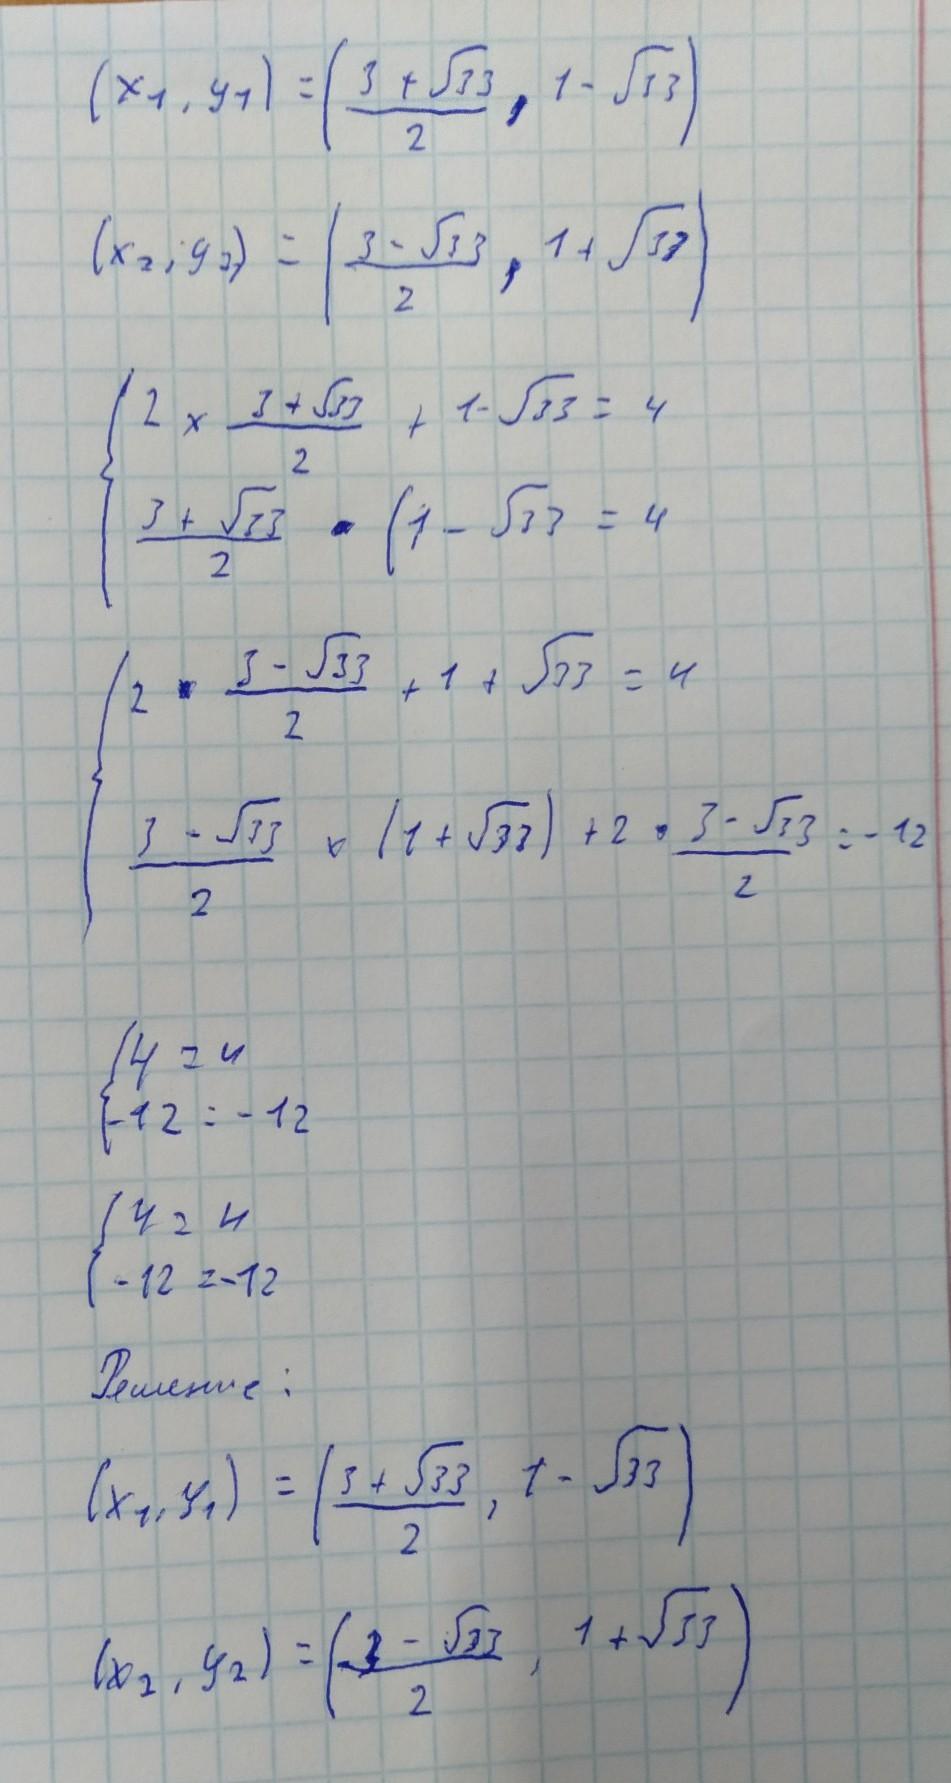 (x₁, y₁) = ((3 + √33)/2, 1 - √33)
(x₂, y₂) = ((3 - √33)/2, 1 + √33)
{ 2 × (3 + √33)/2 + 1 - √33 = 4
(3 + √33)/2 · (1 - √33 = 4
{ 2 · (3 - √33)/2 + 1 + √33 = 4
(3 - √33)/2 × (1 + √33) + 2 · (3 - √33)/2 = -12
{ 4 = 4
-12 = -12
{ 4 = 4
-12 = -12
Решение:
(x₁, y₁) = ((3 + √33)/2, 1 - √33)
(x₂, y₂) = ((3 - √33)/2, 1 + √33)